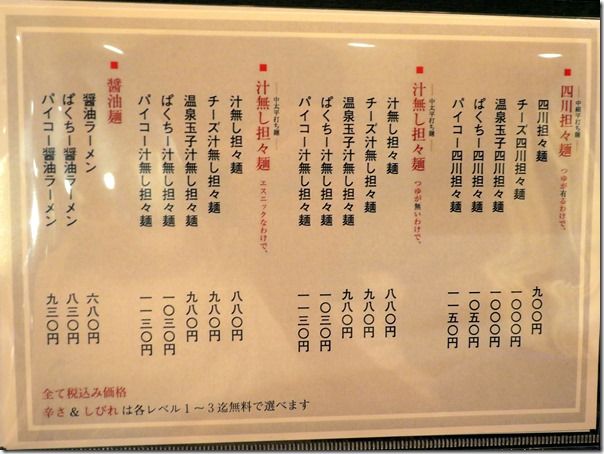 ■ 四川担々麺 つゆが有るわけで、
―中細平打ち麺―
四川担々麺 九〇〇円
チーズ四川担々麺 一〇〇〇円
温泉玉子四川担々麺 一〇〇〇円
ぱくちー四川担々麺 一〇五〇円
パイコー四川担々麺 一一五〇円
■ 汁無し担々麺 つゆが無いわけで、
―中太平打ち麺―
汁無し担々麺 八八〇円
チーズ汁無し担々麺 九八〇円
温泉玉子汁無し担々麺 九八〇円
ぱくちー汁無し担々麺 一〇三〇円
パイコー汁無し担々麺 一一三〇円
■ 汁無し担々麺 エスニックなわけで、
―中太平打ち麺―
汁無し担々麺 八八〇円
チーズ汁無し担々麺 九八〇円
温泉玉子汁無し担々麺 九八〇円
ぱくちー汁無し担々麺 一〇三〇円
パイコー汁無し担々麺 一一三〇円
■ 醤油麺
醤油ラーメン 六八〇円
ぱくちー醤油ラーメン 八三〇円
パイコー醤油ラーメン 九三〇円
全て税込み価格
辛さ & しびれ は各レベル1～3迄無料で選べます